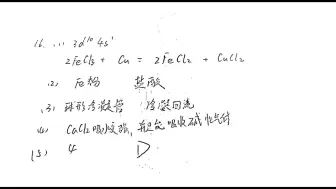 16. ... 3d¹⁰ 4s¹
2FeCl₃ + Cu = 2FeCl₂ + CuCl₂
(2) Fe 盐酸
(3) 球形冷凝管 冷凝回流
(4) CaCl₂吸水强,并且能吸收碱性气体
(5) 4 D